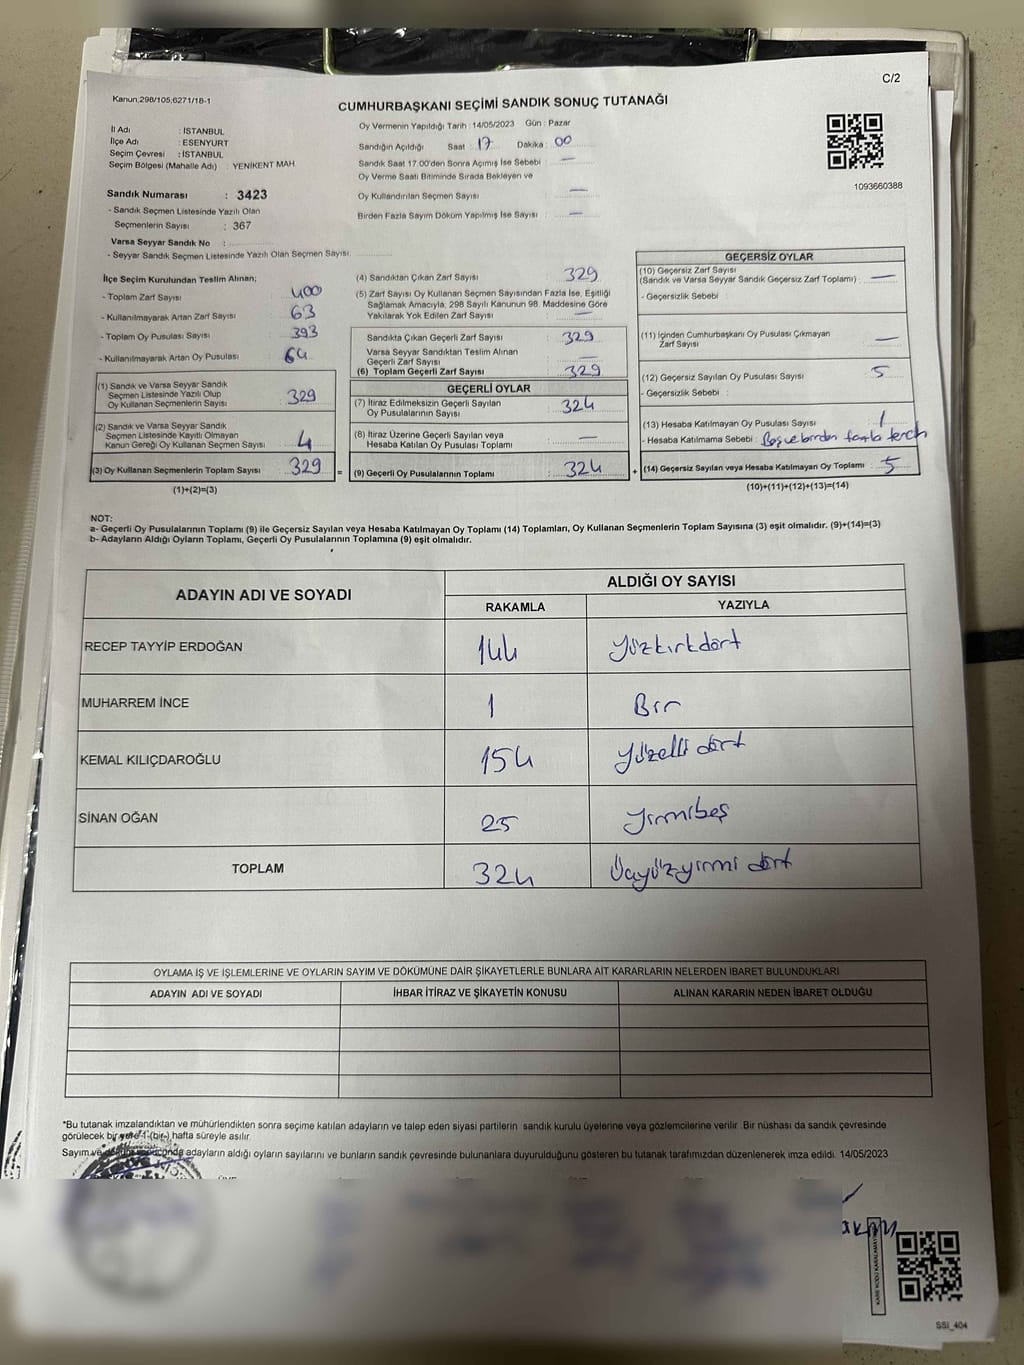 C/2
Kanun,298/105,6271/18-1
CUMHURBAŞKANI SEÇİMİ SANDIK SONUÇ TUTANAĞI
İl Adı : İSTANBUL
İlçe Adı : ESENYURT
Seçim Çevresi : İSTANBUL
Seçim Bölgesi (Mahalle Adı) : YENİKENT MAH.
Sandık Numarası : 3423
- Sandık Seçmen Listesinde Yazılı Olan
Seçmenlerin Sayısı : 367
Varsa Seyyar Sandık No :
- Seyyar Sandık Seçmen Listesinde Yazılı Olan Seçmen Sayısı
Oy Vermenin Yapıldığı Tarih : 14/05/2023 Gün : Pazar
Sandığın Açıldığı Saat : 17 Dakika : 00
Sandık Saat 17.00'den Sonra Açılmış İse Sebebi : —
Oy Verme Saati Bitiminde Sırada Bekleyen ve
Oy Kullandırılan Seçmen Sayısı : —
Birden Fazla Sayım Döküm Yapılmış İse Sayısı : —
1093660388
İlçe Seçim Kurulundan Teslim Alınan;
- Toplam Zarf Sayısı : 400
- Kullanılmayarak Artan Zarf Sayısı : 63
- Toplam Oy Pusulası Sayısı : 393
- Kullanılmayarak Artan Oy Pusulası : 64
(1) Sandık ve Varsa Seyyar Sandık
Seçmen Listesinde Yazılı Olup
Oy Kullanan Seçmenlerin Sayısı : 329
(2) Sandık ve Varsa Seyyar Sandık
Seçmen Listesinde Kayıtlı Olmayan
Kanun Gereği Oy Kullanan Seçmen Sayısı : 4
(3) Oy Kullanan Seçmenlerin Toplam Sayısı : 329 =
(1)+(2)=(3)
(4) Sandıktan Çıkan Zarf Sayısı : 329
(5) Zarf Sayısı Oy Kullanan Seçmen Sayısından Fazla İse, Eşitliği
Sağlamak Amacıyla, 298 Sayılı Kanunun 98. Maddesine Göre
Yakılarak Yok Edilen Zarf Sayısı : —
Sandıkta Çıkan Geçerli Zarf Sayısı : 329
Varsa Seyyar Sandıktan Teslim Alınan
Geçerli Zarf Sayısı : —
(6) Toplam Geçerli Zarf Sayısı : 329
GEÇERLİ OYLAR
(7) İtiraz Edilmeksizin Geçerli Sayılan
Oy Pusulalarının Sayısı : 324
(8) İtiraz Üzerine Geçerli Sayılan veya
Hesaba Katılan Oy Pusulaları Toplamı : —
(9) Geçerli Oy Pusulalarının Toplamı : 324 +
GEÇERSİZ OYLAR
(10) Geçersiz Zarf Sayısı
(Sandık ve Varsa Seyyar Sandık Geçersiz Zarf Toplamı) : —
- Geçersizlik Sebebi :
(11) İçinden Cumhurbaşkanı Oy Pusulası Çıkmayan
Zarf Sayısı : —
(12) Geçersiz Sayılan Oy Pusulası Sayısı : 5
- Geçersizlik Sebebi :
(13) Hesaba Katılmayan Oy Pusulası Sayısı : 1
- Hesaba Katılmama Sebebi : birden fazla tercih
(14) Geçersiz Sayılan veya Hesaba Katılmayan Oy Toplamı : 5
(10)+(11)+(12)+(13)=(14)
NOT:
a- Geçerli Oy Pusulalarının Toplamı (9) ile Geçersiz Sayılan veya Hesaba Katılmayan Oy Toplamı (14) Toplamları, Oy Kullanan Seçmenlerin Toplam Sayısına (3) eşit olmalıdır. (9)+(14)=(3)
b- Adayların Aldığı Oyların Toplamı, Geçerli Oy Pusulalarının Toplamına (9) eşit olmalıdır.
ADAYIN ADI VE SOYADI
ALDIĞI OY SAYISI
RAKAMLA YAZIYLA
RECEP TAYYİP ERDOĞAN 144 Yüzkırkdört
MUHARREM İNCE 1 Bir
KEMAL KILIÇDAROĞLU 154 Yüzelli dört
SİNAN OĞAN 25 Yirmibeş
TOPLAM 324 Üçyüzyirmi dört
OYLAMA İŞ VE İŞLEMLERİNE VE OYLARIN SAYIM VE DÖKÜMÜNE DAİR ŞİKAYETLERLE BUNLARA AİT KARARLARIN NELERDEN İBARET BULUNDUKLARI
ADAYIN ADI VE SOYADI İHBAR İTİRAZ VE ŞİKAYETİN KONUSU ALINAN KARARIN NEDEN İBARET OLDUĞU
*Bu tutanak imzalandıktan ve mühürlendikten sonra seçime katılan adayların ve talep eden siyasi partilerin sandık kurulu üyelerine veya gözlemcilerine verilir. Bir nüshası da sandık çevresinde
görülecek bir yere 1 (bir) hafta süreyle asılır.
Sayım ve sonucunda adayların aldığı oyların sayılarını ve bunların sandık çevresinde bulunanlara duyurulduğunu gösteren bu tutanak tarafımızdan düzenlenerek imza edildi. 14/05/2023
KARE KODU KARALAMAYINIZ
SSI_404